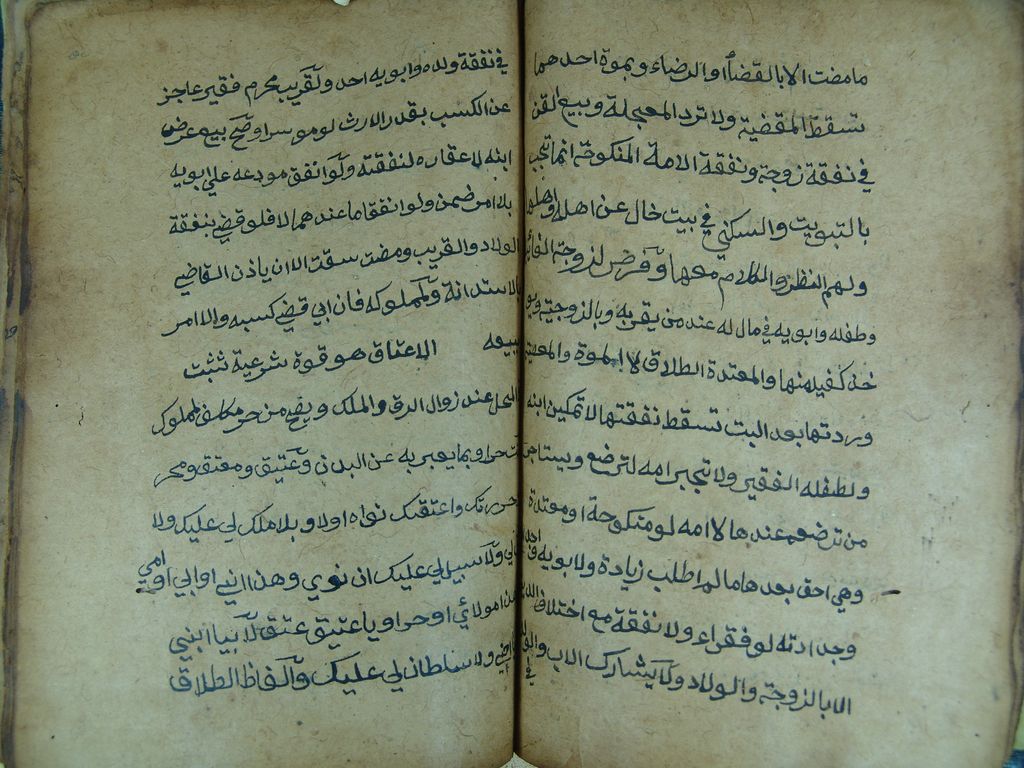 مامضت الا بالقضاء او الرضاء وبموة احدهما
تسقط المقضية ولا ترد المعجلة وبيع القن
في نفقة زوجته ونفقة الامة المنكوحة انما تجب
بالتبويت والسكني في بيت خال عن اهله واهلها
ولهم النظر والكلام معها وفرض لزوجة الغائب
وطفله وابويه في مال له عند من يقر به وبالزوجية
كفيل منها والمعتدة الطلاق لا الموة والمعصية
وردتها بعد البت تسقط نفقتها لا تمكين ابنه
ولطفله الفقير ولا تجبر امه لترضع ويستاجر
من ترضعه عندها لا امه لو منكوحة او معتدة
وهي احق بعدها مالم اطلب زيادة ولابويه واجداده
وجداته لو فقراء ولا نفقة مع اختلاف الدين
الا بالزوجية والولاد ولا يشارك الاب والولد
في نفقة ولده وابويه احد ولقريب محرم فقير عاجز
عن الكسب بقدر الارث لو موسرا وصح بيع عرض
ابنه لا عقاره لنفقته ولو انفق مودعه علي ابويه
بلا امر ضمن ولو انفقا ما عندهما لا فلو قضي بنفقة
الولاد والقريب ومضت سقت الا ان ياذن القاضي
بالاستدانة ولمملوكه فان ابي ففي كسبه والا امر
ببيعه الاعتاق هو قوة شرعية تثبت
المحل عند زوال الرق والملك ويصح من حر مكلف لمملوك
انت حر او بما يعبر به عن البدن وعتيق ومعتق ومحر
وحررتك واعتقتك نواه اولا وبلا ملك لي عليك ولا
ولا سبيل لي عليك ان نوي وهذا ابني او ابي او امي
هذا مولاي او حر او يا عتيق عتق لا بيا ابني
اخي ولا سلطان لي عليك والفاظ الطلاق